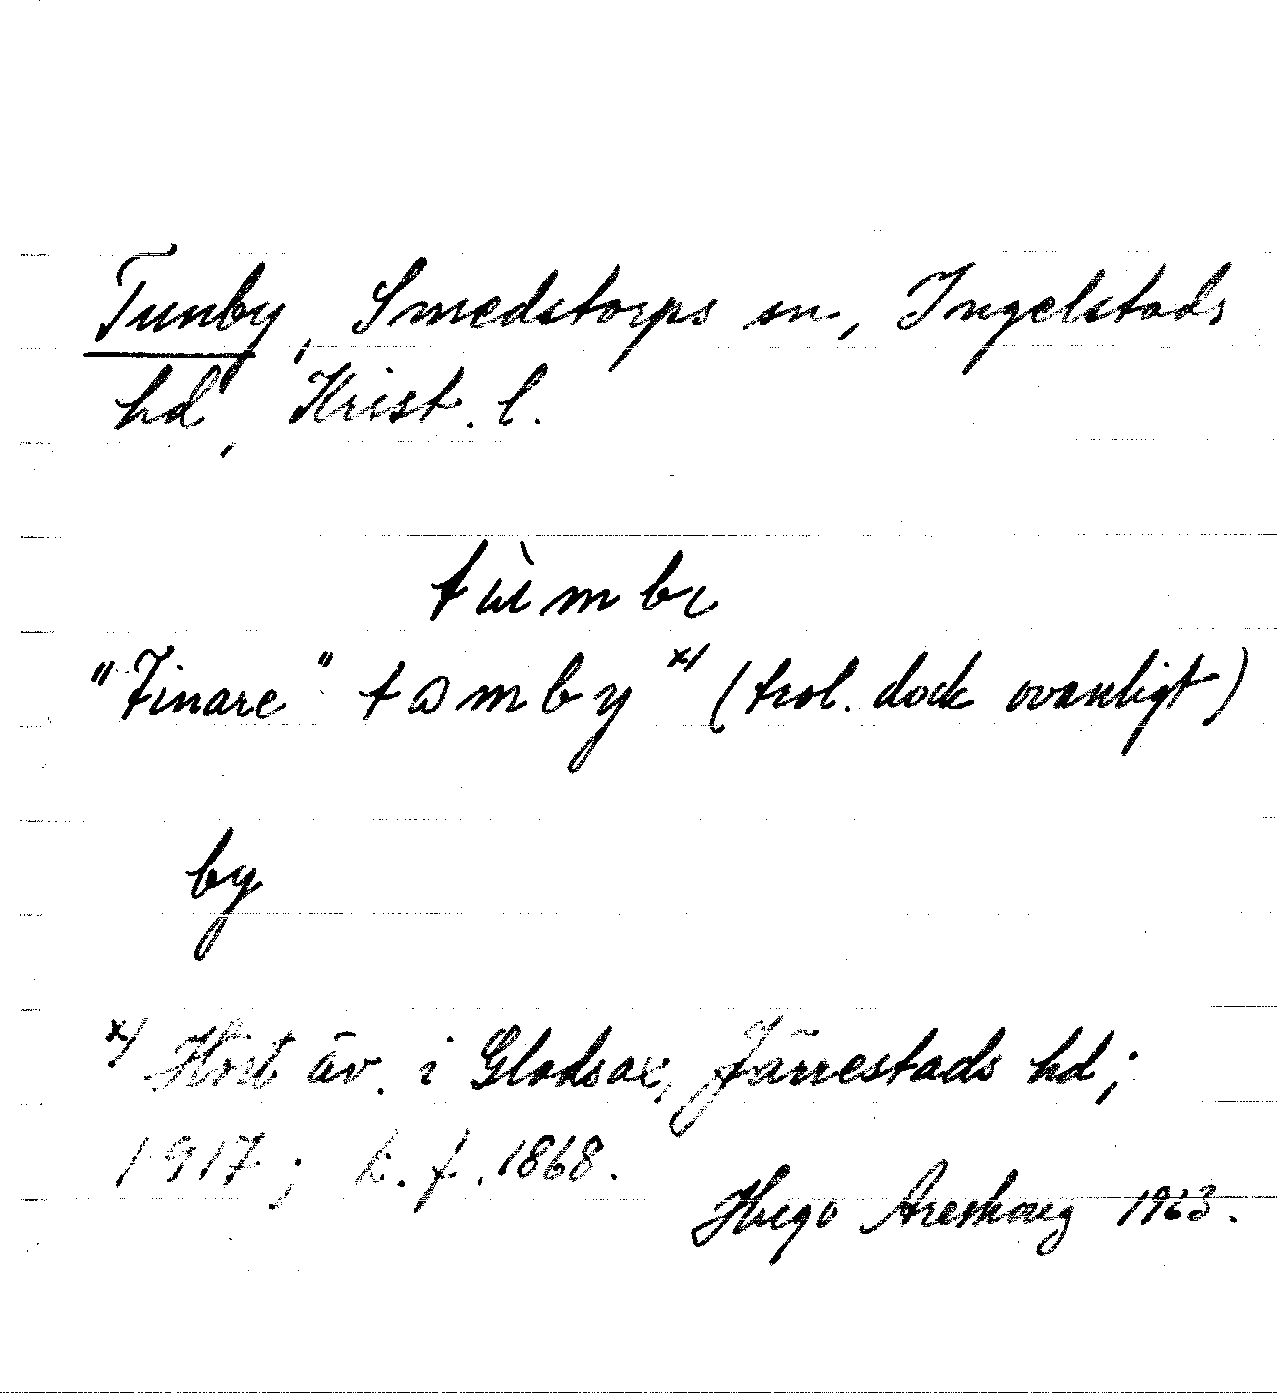 Tunby, Smedstorps sn, Ingelstads
hd, Krist. l.
"Finare" tɷmby x) (trol. dock ovanligt)
by
x) Hört äv. i Gladsax, Järrestads hd;
1917; k. f. 1868.
Hugo Areskoug 1963.